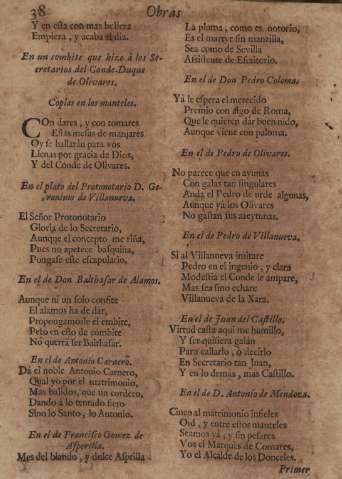 38 Obras
Y en esta con mas belleza
Empieza, y acaba el dia.
En un combite que hizo à los Se-
cretarios del Conde-Duque
de Olivares.
Coplas en los manteles.
CON dares, y con tomares
Estas mesas de manjares
Oy se hallaràn para vos
Llenas por gracia de Dios,
Y del Conde de Olivares.
En el plato del Protonotario D. Ge-
ronimo de Villanueva.
El Señor Protonotario
Gloria de lo Secretario,
Aunque el concepto me riña,
Pues no apetece basquiña,
Pongase este escapulario.
En el de Don Balthasar de Alamos.
Aunque ni un solo confite
El alamos ha de dar,
Propongamosle el embite,
Pero en esto de combite
No querrà ser Balthasar.
En el de Antonio Carnero.
Dà el noble Antonio Carnero,
Qual yo por el matrimonio,
Mas balidos, que un cordero,
Dando à lo tentado fiero
Sino lo Santo, lo Antonio.
En el de Francisco Gomez de
Asperilla.
Mes del blondo, y dulce Asprilla
La pluma, como es notorio,
Es el martyr sin manzilla,
Sea como de Sevilla
Assistente de Escritorio.
En el de Don Pedro Coloma.
Yà le espera el merecido
Premio con algo de Roma,
Que le quieren dar buen nido,
Aunque viene con paloma.
En el de Pedro de Olivares.
No parece que en ayunas
Con galas tan singulares
Anda el Pedro de urde algunas,
Aunque yà los Olivares
No gastan sus azeytunas.
En el de Pedro de Villanueva.
Si al Villanueva imitare
Pedro en el ingenio, y clara
Modestia el Conde le ampare,
Mas sea sino echare
Villanueva de la Xara.
En el de Juan del Castillo.
Virtud casta aqui me humillo,
Y se quisiera galàn
Para callarlo, ò decirlo
En Secretario tan Juan,
Y en lo demàs, mas Castillo.
En el de D. Antonio de Mendoza.
Cinco al matrimonio infieles
Oid, y entre estos manteles
Seamos yà, y sin pesares
Vos el Marquès de Comares,
Yo el Alcalde de los Donceles.
Primer